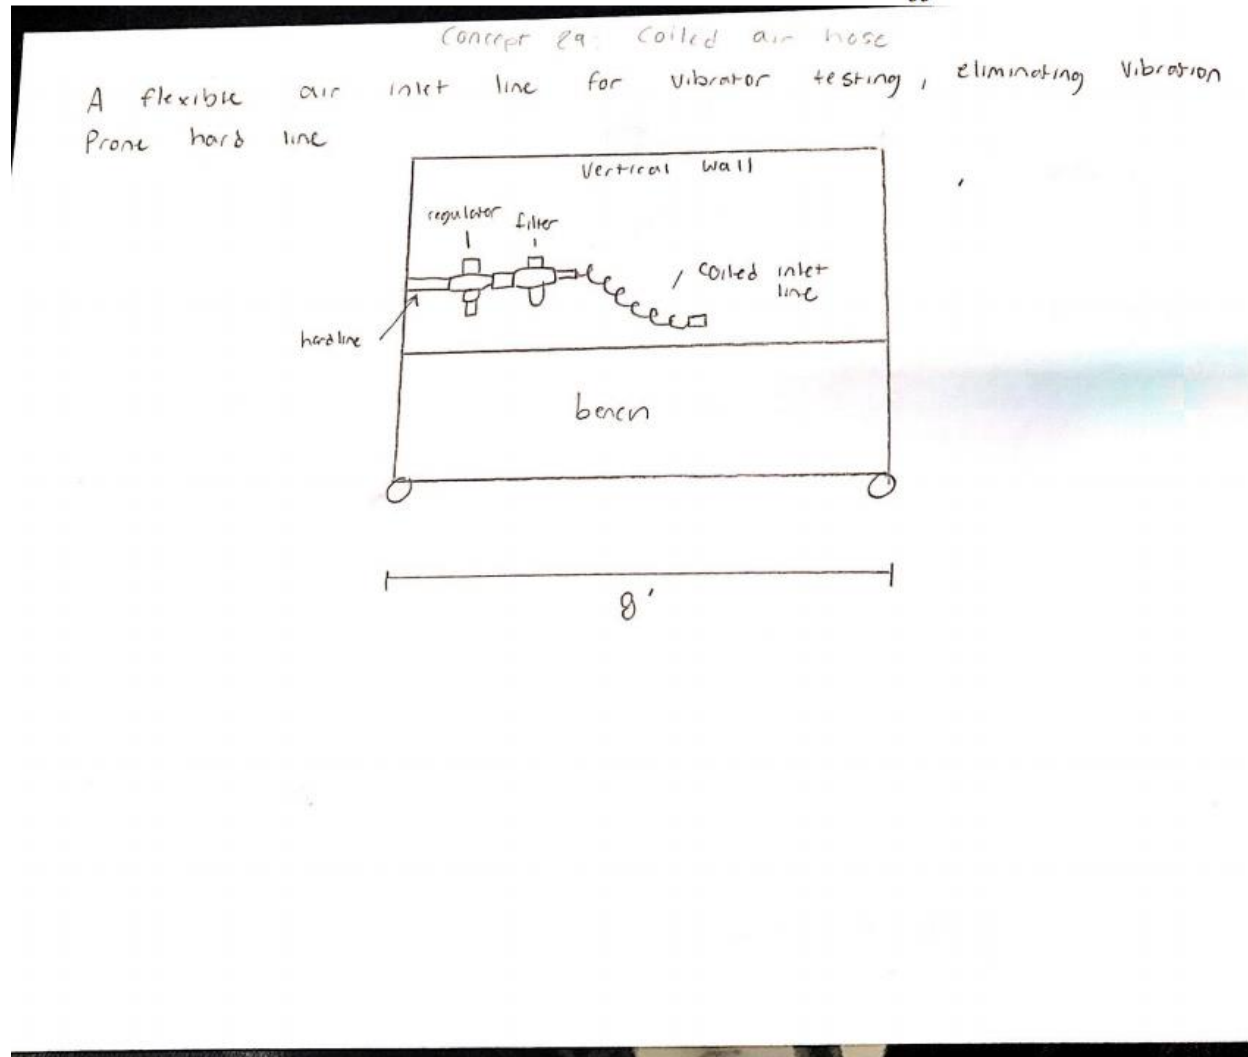 Concept 29: Coiled air hose
A flexible air inlet line for vibrator testing, eliminating vibration
Prone hard line
Vertical wall
regulator filter
coiled inlet
line
hardline
bench
8'